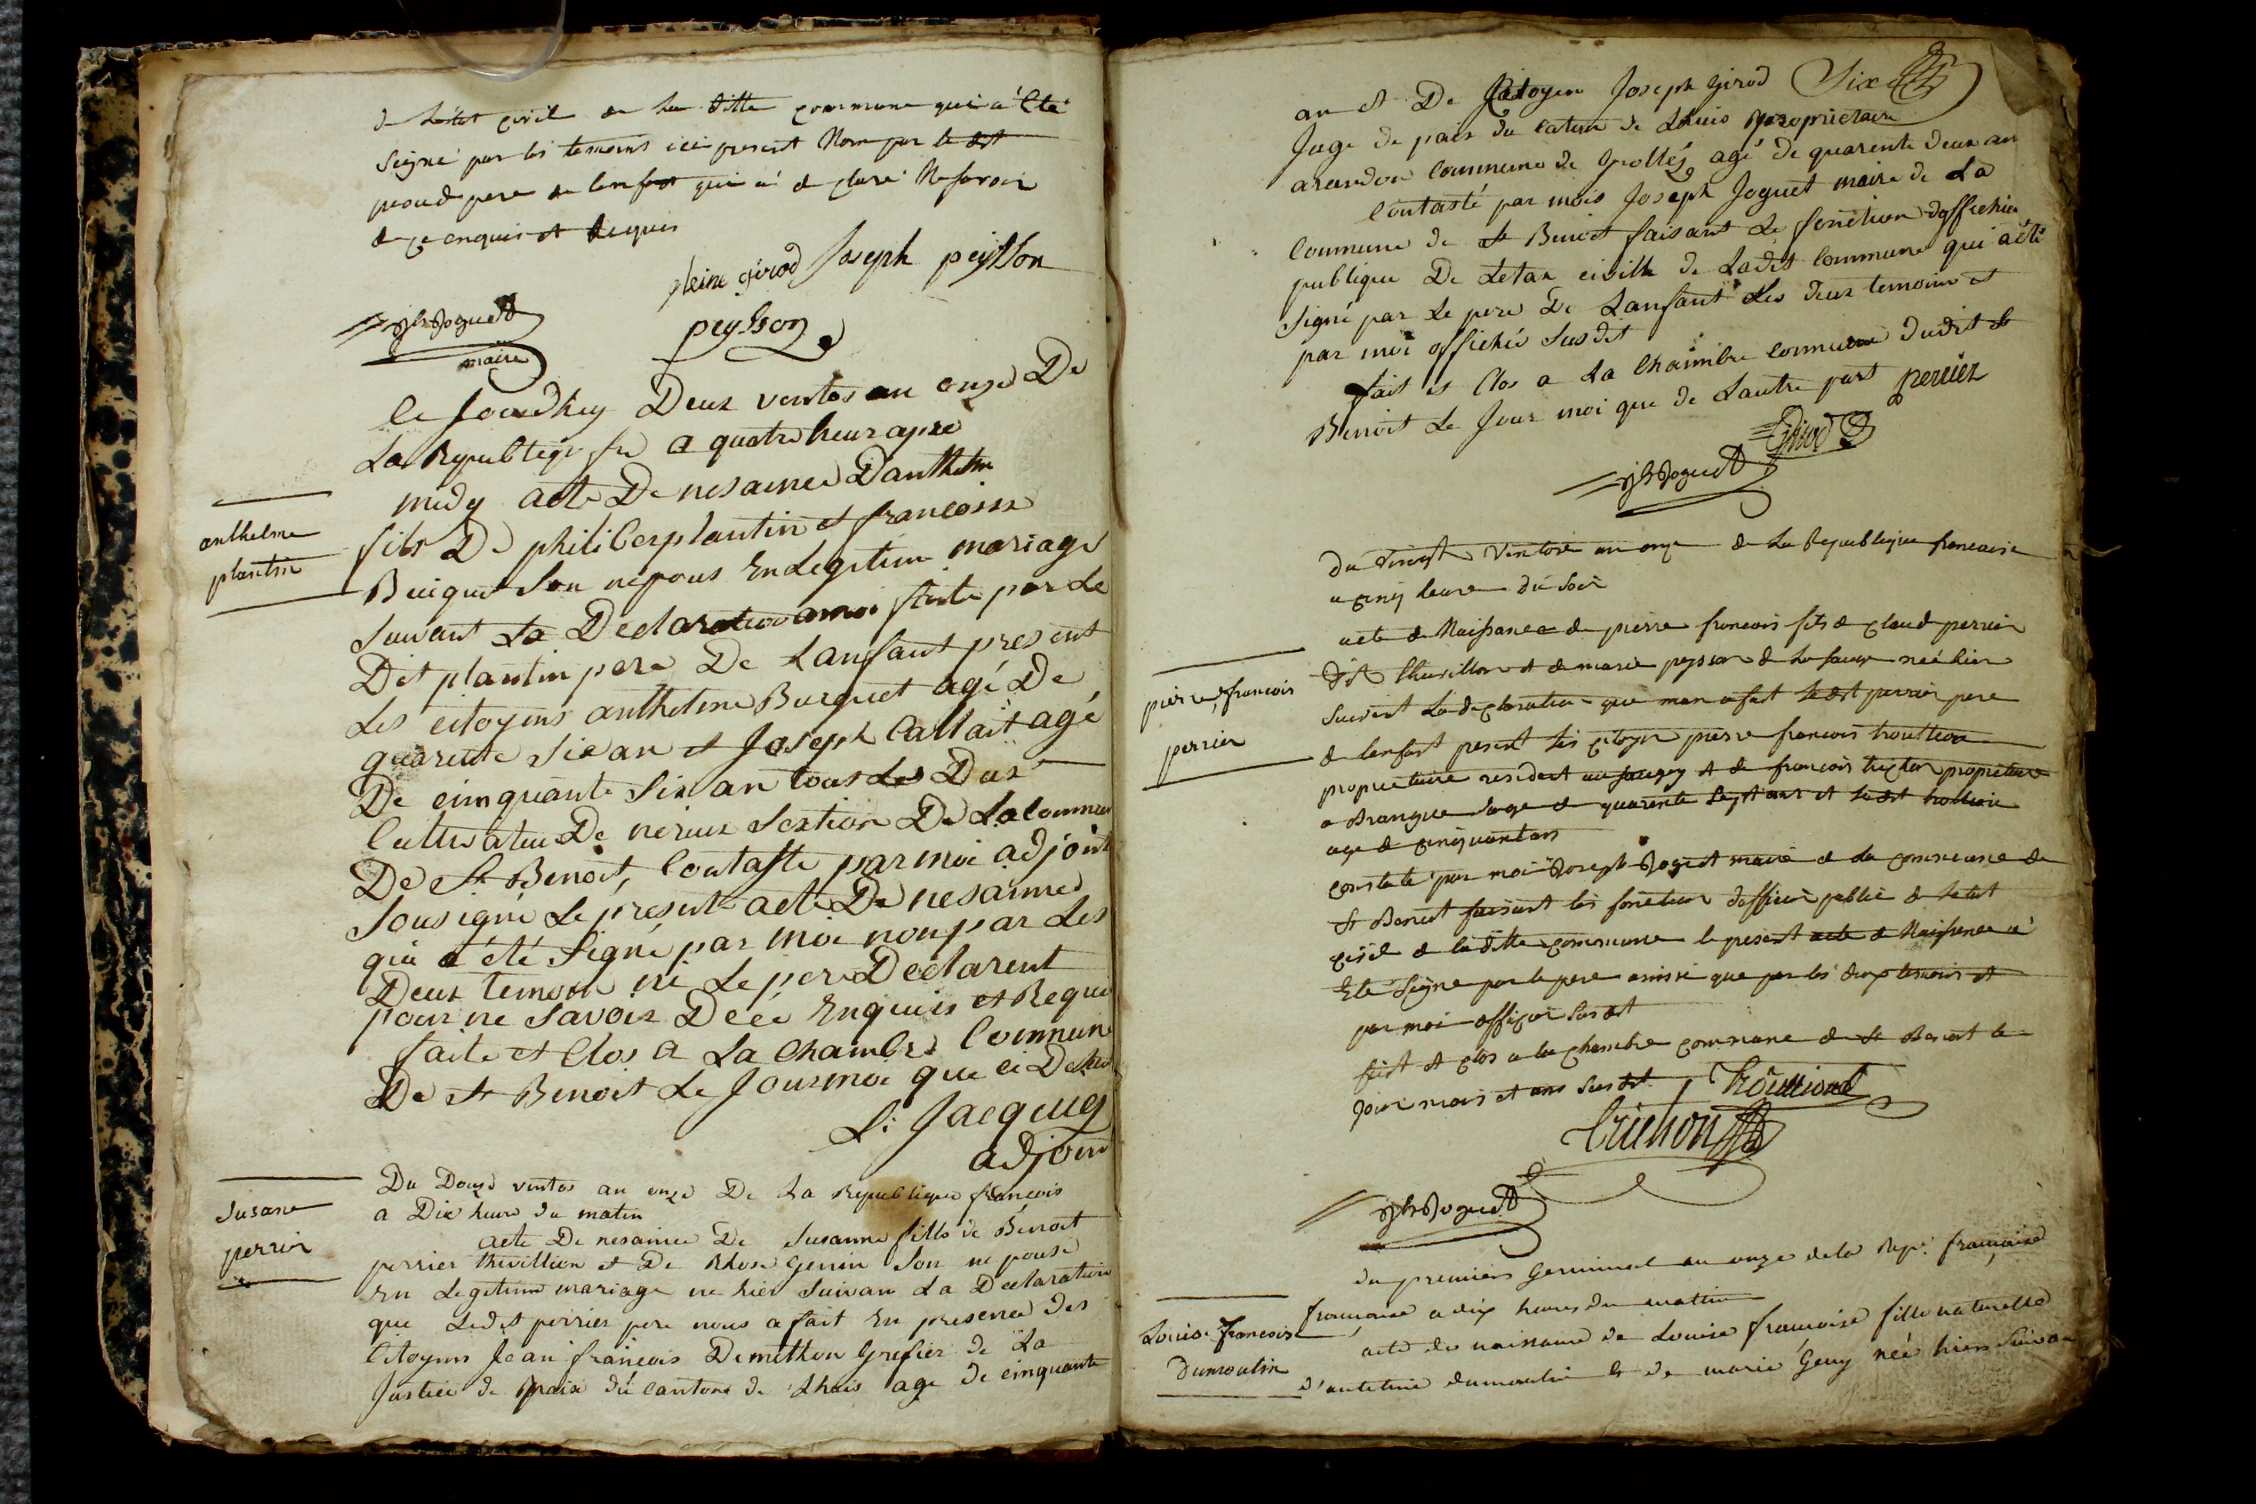 de Letat civil de La ditte commune qui a Eté
Signé par les temoins ici present Non par le dit
pere de lenfant qui a declaré Ne savoir
de ce enquis et Requis
pleine girod Joseph peysson
Jh Joguet
maire
peysson
le Jourdhuy Deux ventos an onze De
La Republiqe fr a quatre heur apre
midy acte De nesaince Danthelm
anthelme
plantin
fils De philiber plantin et francoise
Buiquet Son nepous En Legitime mariage
Suivant La Declaration a moi faite par Le
Dit plantin pere De Lanfant present
Les citoyens anthelme Burquet agé De
quarente Six an et Joseph Callait agé
De cinquante Six an tous Les Dux
Cultivateur De nerieux Section De La commun
De St Benoit, Contaste par moi adjoint
Sousigné Le present acte De nesaince
qui a été Signé par moi non par Les
Deux temoin ni Le pere Declarent
pour ne Savoir De ce Enquis et Requi
faite et Clos a La Chambre Commune
De St Benoit Le Jour moi que ci Desus
L. Jacquy
adjoint
Du Douze ventos an onze De La Republique francois
a Dix heure du matin
Susane
perrier
acte De nesaince De Susanne fille de Benoit
perrier thivillion et De Rhose Genin Son ne pouse
En Legitime mariage ne hier Suivan La Declaration
que Ledit perrier pere nous a fait En presence des
Citoyens Jean francois Demethon Grefier de La
Justice de paix du cantons de Lhuis age de cinquante
an et De Citoyen Joseph Girod Six
Juge de paix du Canton de Lhuis propriétaire
arandon Commune de Grolléz agé de quarente deux an
Contasté par mois Joseph Joguet maire de La
Commune de St Benoit faisant Le fonction doffichier
publique De Letax civille de Ladit Commune qui a été
Signé par Le pere De Lanfant Les deux temoins et
par moi officié Susdit
fait et Clos a La Chambre Commune dudit St
Benoit Le Jour moi que de Lautre part perrier
Girod
Jh Joguet
du vingt Ventose an onze de La Republique francaise
a cinq heure du Soir
acte de Naissance de pierre francois fils de Claud perrier
pierre francois
perrier
dit et de marie peysson de née hier
Suivant La declaration que man a fait ledit perrier pere
de lenfant present les citoyen pierre francois trouttion
proprietaire resident et de francois trichon proprietaire
a Brangue age de quarente Sept ans et ledit
age de cinquantans
constaté par moi Joseph Joguet maire de La commune de
St Benoit faisant les fonction dofficier public de Letat
civil de La ditte commune le present acte de Naissance a
Eté Signé par le pere ainssi que par les deux temoins et
par moi officier Susdit
fait et clos a la chambre commune de St Benoit le
Jour mois et ans Susdit Trouttiont
trichon
Jh Joguet
du premiers Germinal an onze de la Rep. française
francaise a dix heures du matin
Louise francoise
Dumoulin
acte de naissance de Louise francoise fille naturelle
d'antelme dumoulin & de marie Geny née hier Suivan